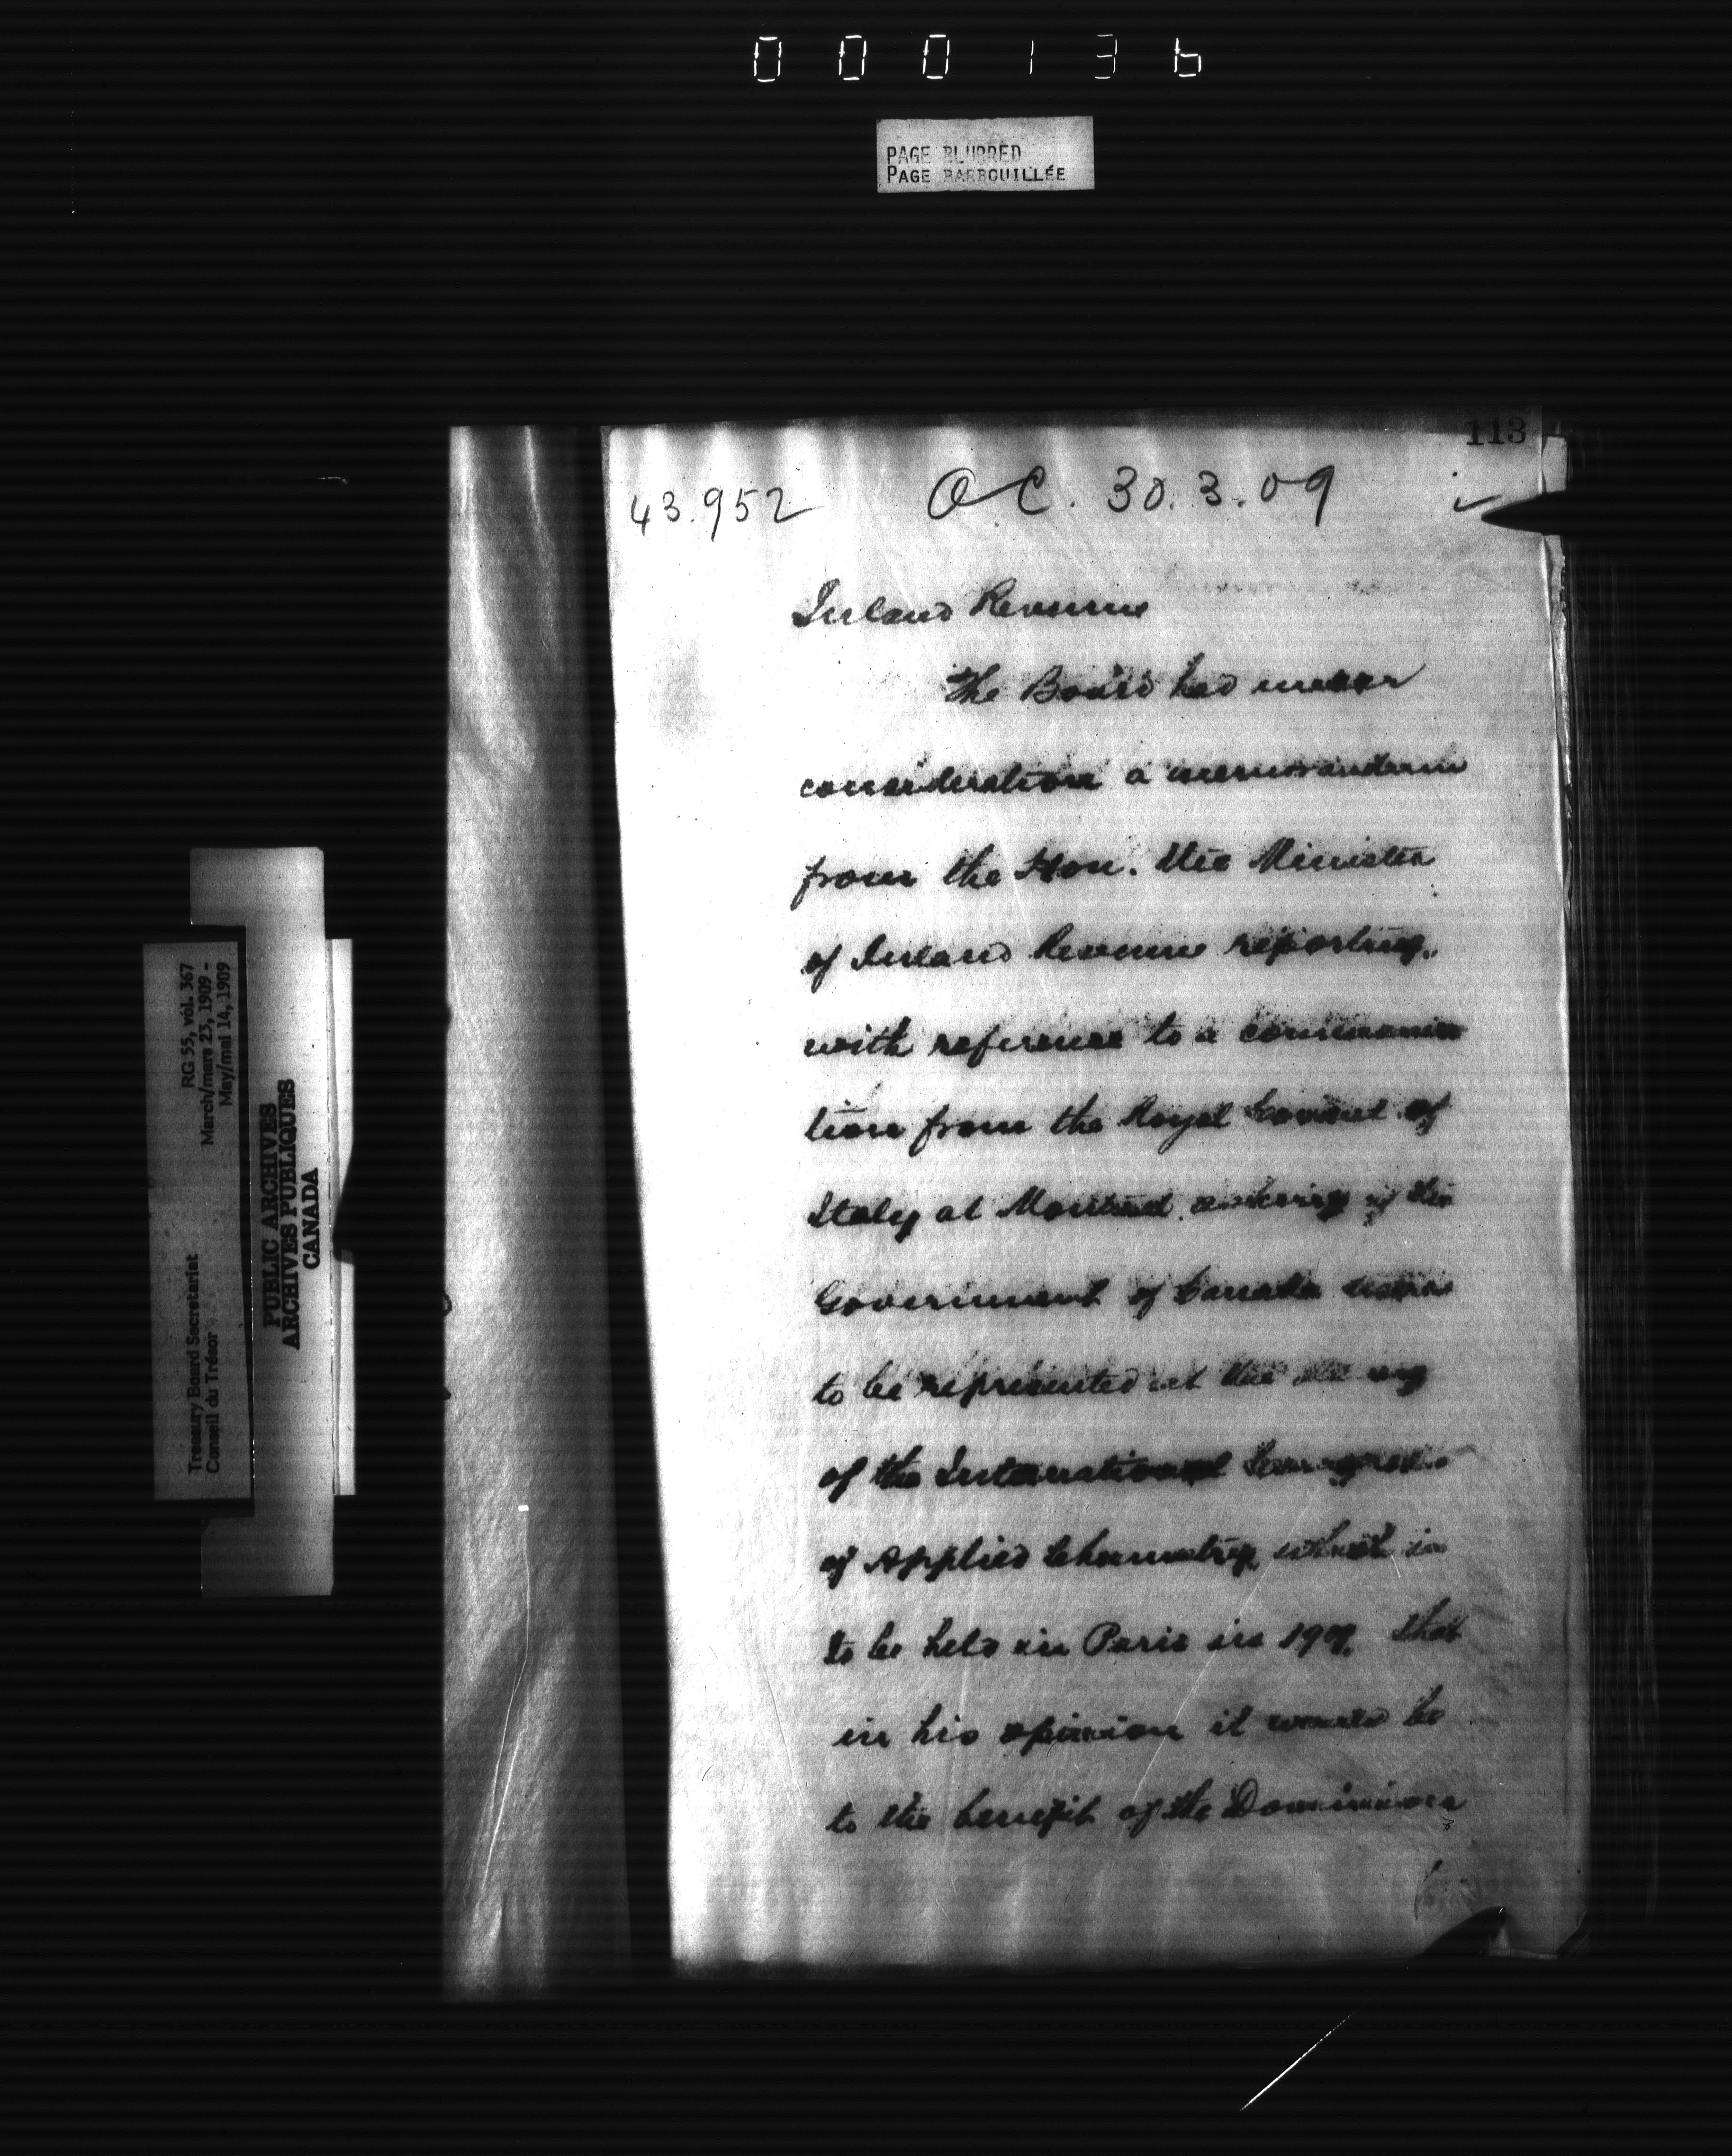 000136
PAGE BLURRED
PAGE BARBOUILLÉE
113
43.952 OC. 30.3.09
Inland Revenue
The Board had under
consideration a memorandum
from the Hon. the Minister
of Inland Revenue reporting,
with reference to a communica
tion from the Royal Consul of
Italy at Montreal asking if the
Government of Canada
to be represented at the
of the International Congress
of Applied Chemistry which is
to be held in Paris in 1909, that
in his opinion it would be
to the benefit of the Dominion
Treasury Board Secretariat
Conseil du Trésor
RG 55, vol. 367
March/mars 23, 1909 -
May/mai 14, 1909
PUBLIC ARCHIVES
ARCHIVES PUBLIQUES
CANADA